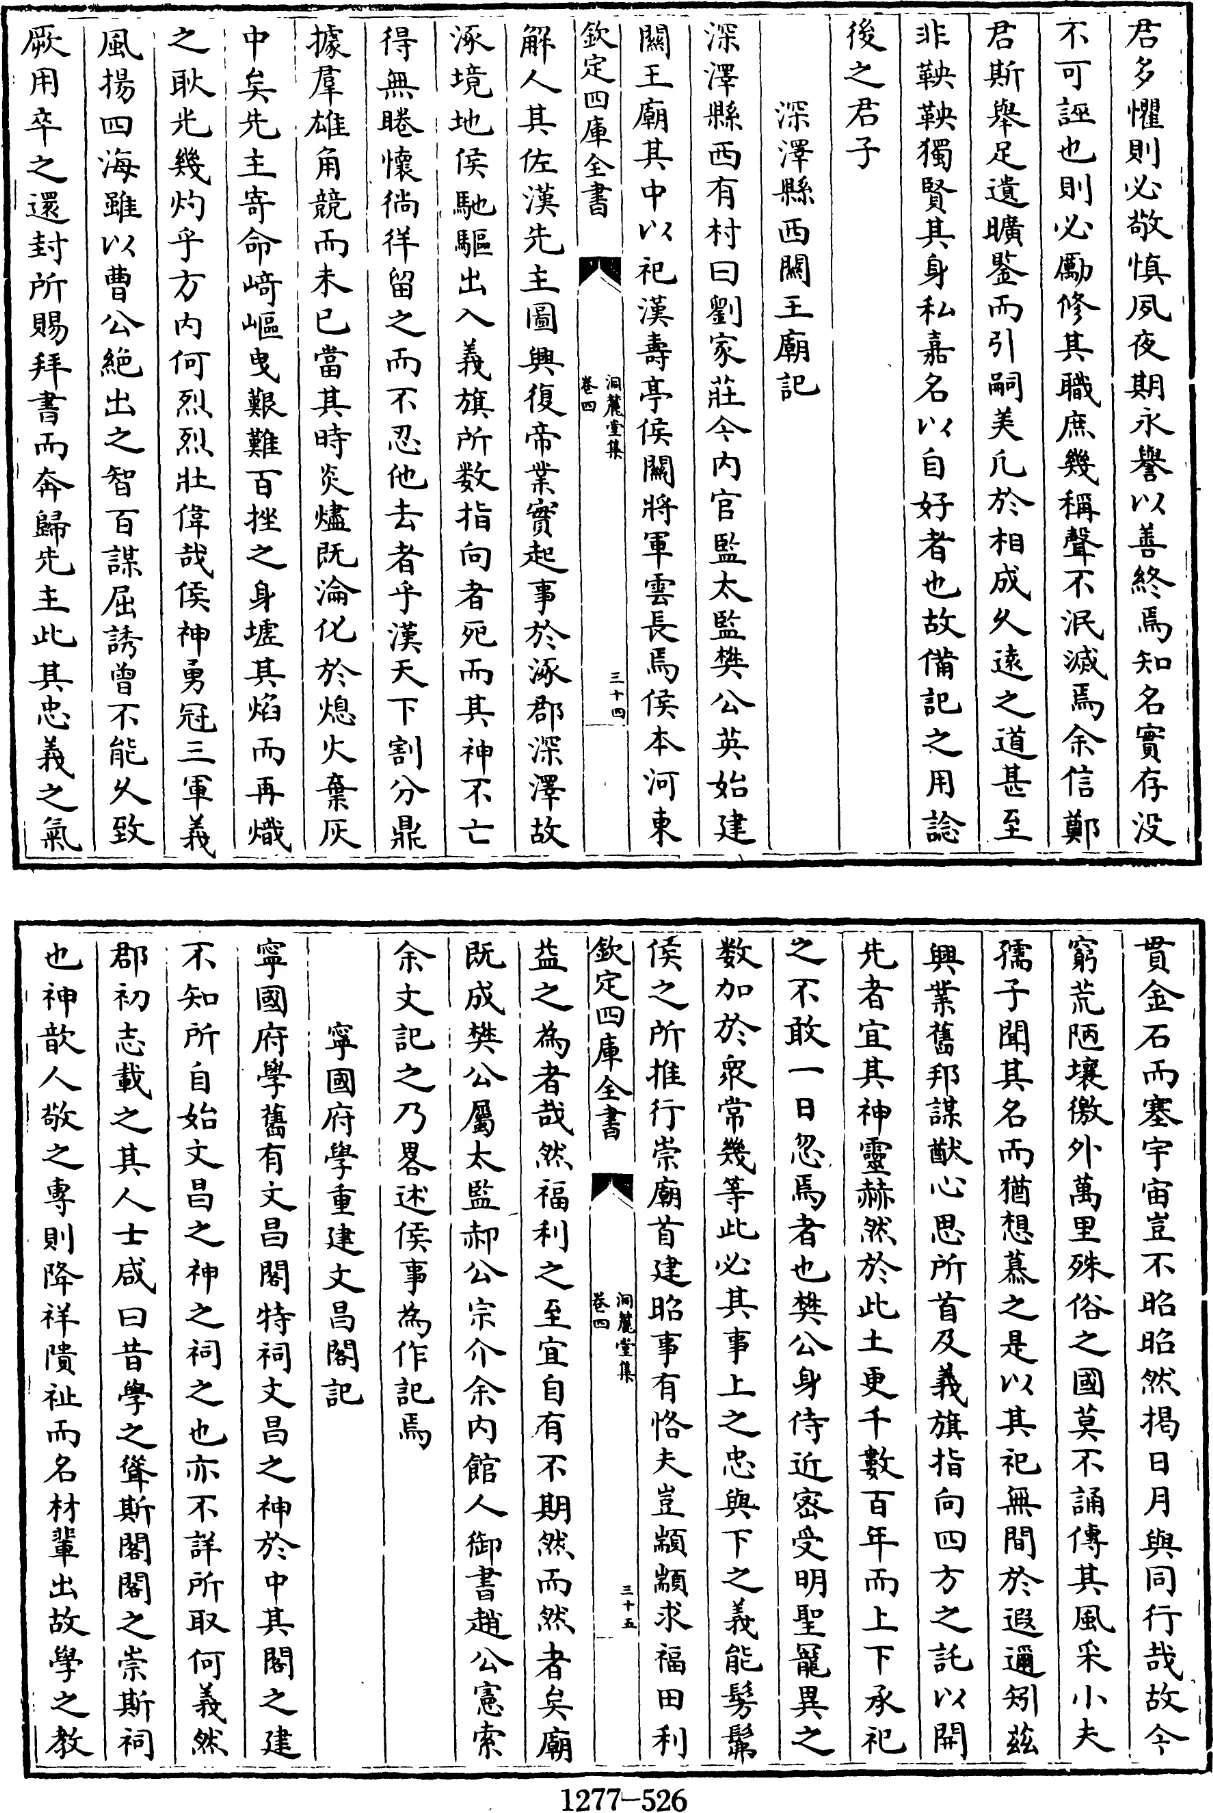 君多懼則必敬慎夙夜期永譽以善終焉知名實存没
不可誣也則必勵修其職庶幾稱聲不泯滅焉余信鄭
君斯舉足遺曠鑒而引嗣美凢於相成乆逺之道甚至
非鞅鞅獨賢其身私嘉名以自好者也故備記之用諗
後之君子
深澤縣西關王廟記
深澤縣西有村曰劉家莊今内官監太監樊公英始建
關王廟其中以祀漢壽亭侯關將軍雲長焉侯本河東
欽定四庫全書
洞麓堂集
卷四
三十四
解人其佐漢先主圖興復帝業實起事於涿郡深澤故
涿境地侯馳驅出入義旗所数指向者死而其神不亡
得無睠懷徜徉留之而不忍他去者乎漢天下割分鼎
據羣雄角競而未已當其時炎燼既淪化於熄火棄灰
中矣先主寄命﨑嶇曳艱難百挫之身墟其焰而再熾
之耿光幾灼乎方内何烈烈壯偉哉侯神勇冠三軍義
風揚四海雖以曹公絶出之智百謀屈誘曾不能乆致
厥用卒之還封所賜拜書而奔歸先主此其忠義之氣
貫金石而塞宇宙豈不昭昭然掲日月與同行哉故今
窮荒陋壤徼外萬里殊俗之國莫不誦傳其風采小夫
孺子聞其名而猶想慕之是以其祀無間於遐邇矧兹
興業舊邦謀猷心思所首及義旗指向四方之託以開
先者宜其神靈赫然於此土更千數百年而上下承祀
之不敢一日忽焉者也樊公身侍近密受明聖寵異之
数加於衆常幾等此必其事上之忠與下之義能髣髴
侯之所推行崇廟首建昭事有恪夫豈顓顓求福田利
欽定四庫全書
洞麓堂集
卷四
三十五
益之為者哉然福利之至宜自有不期然而然者矣廟
既成樊公屬太監郝公宗介余内館人御書趙公憲索
余文記之乃畧述侯事為作記焉
寧國府學重建文昌閣記
寧國府學舊有文昌閣特祠文昌之神於中其閣之建
不知所自始文昌之神之祠之也亦不詳所取何義然
郡初志載之其人士咸曰昔學之聳斯閣閣之崇斯祠
也神歆人敬之専則降祥隤祉而名材輩出故學之教
1277-526